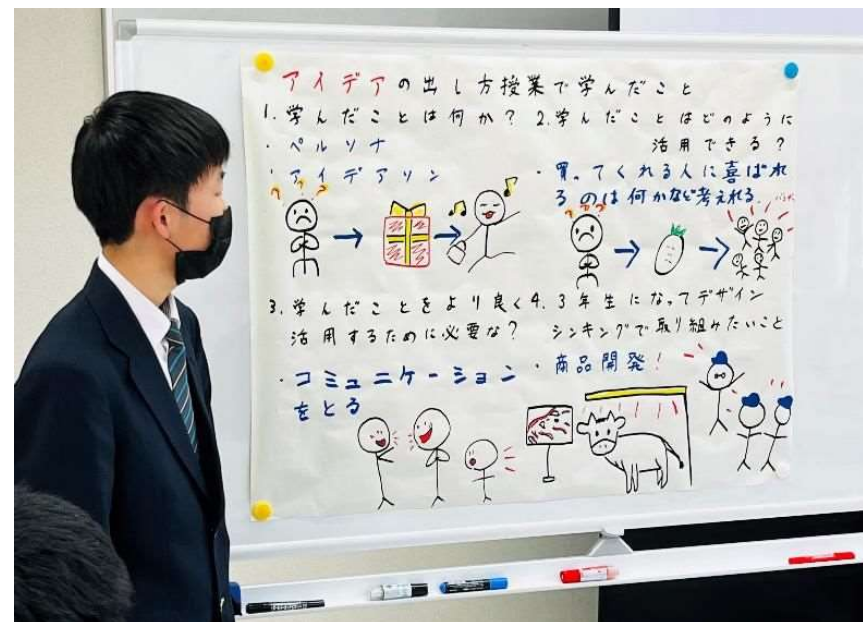 アイデアの出し方授業で学んだこと
1. 学んだことは何か?
・ペルソナ
・アイデアソン
2. 学んだことはどのように
活用できる?
・買ってくれる人に喜ばれ
るのは何かなど考えれる。
3. 学んだことをより良く
活用するために必要な?
・コミュニケーション
をとる
4. 3年生になってデザイン
シンキングで取り組みたいこと
・商品開発!